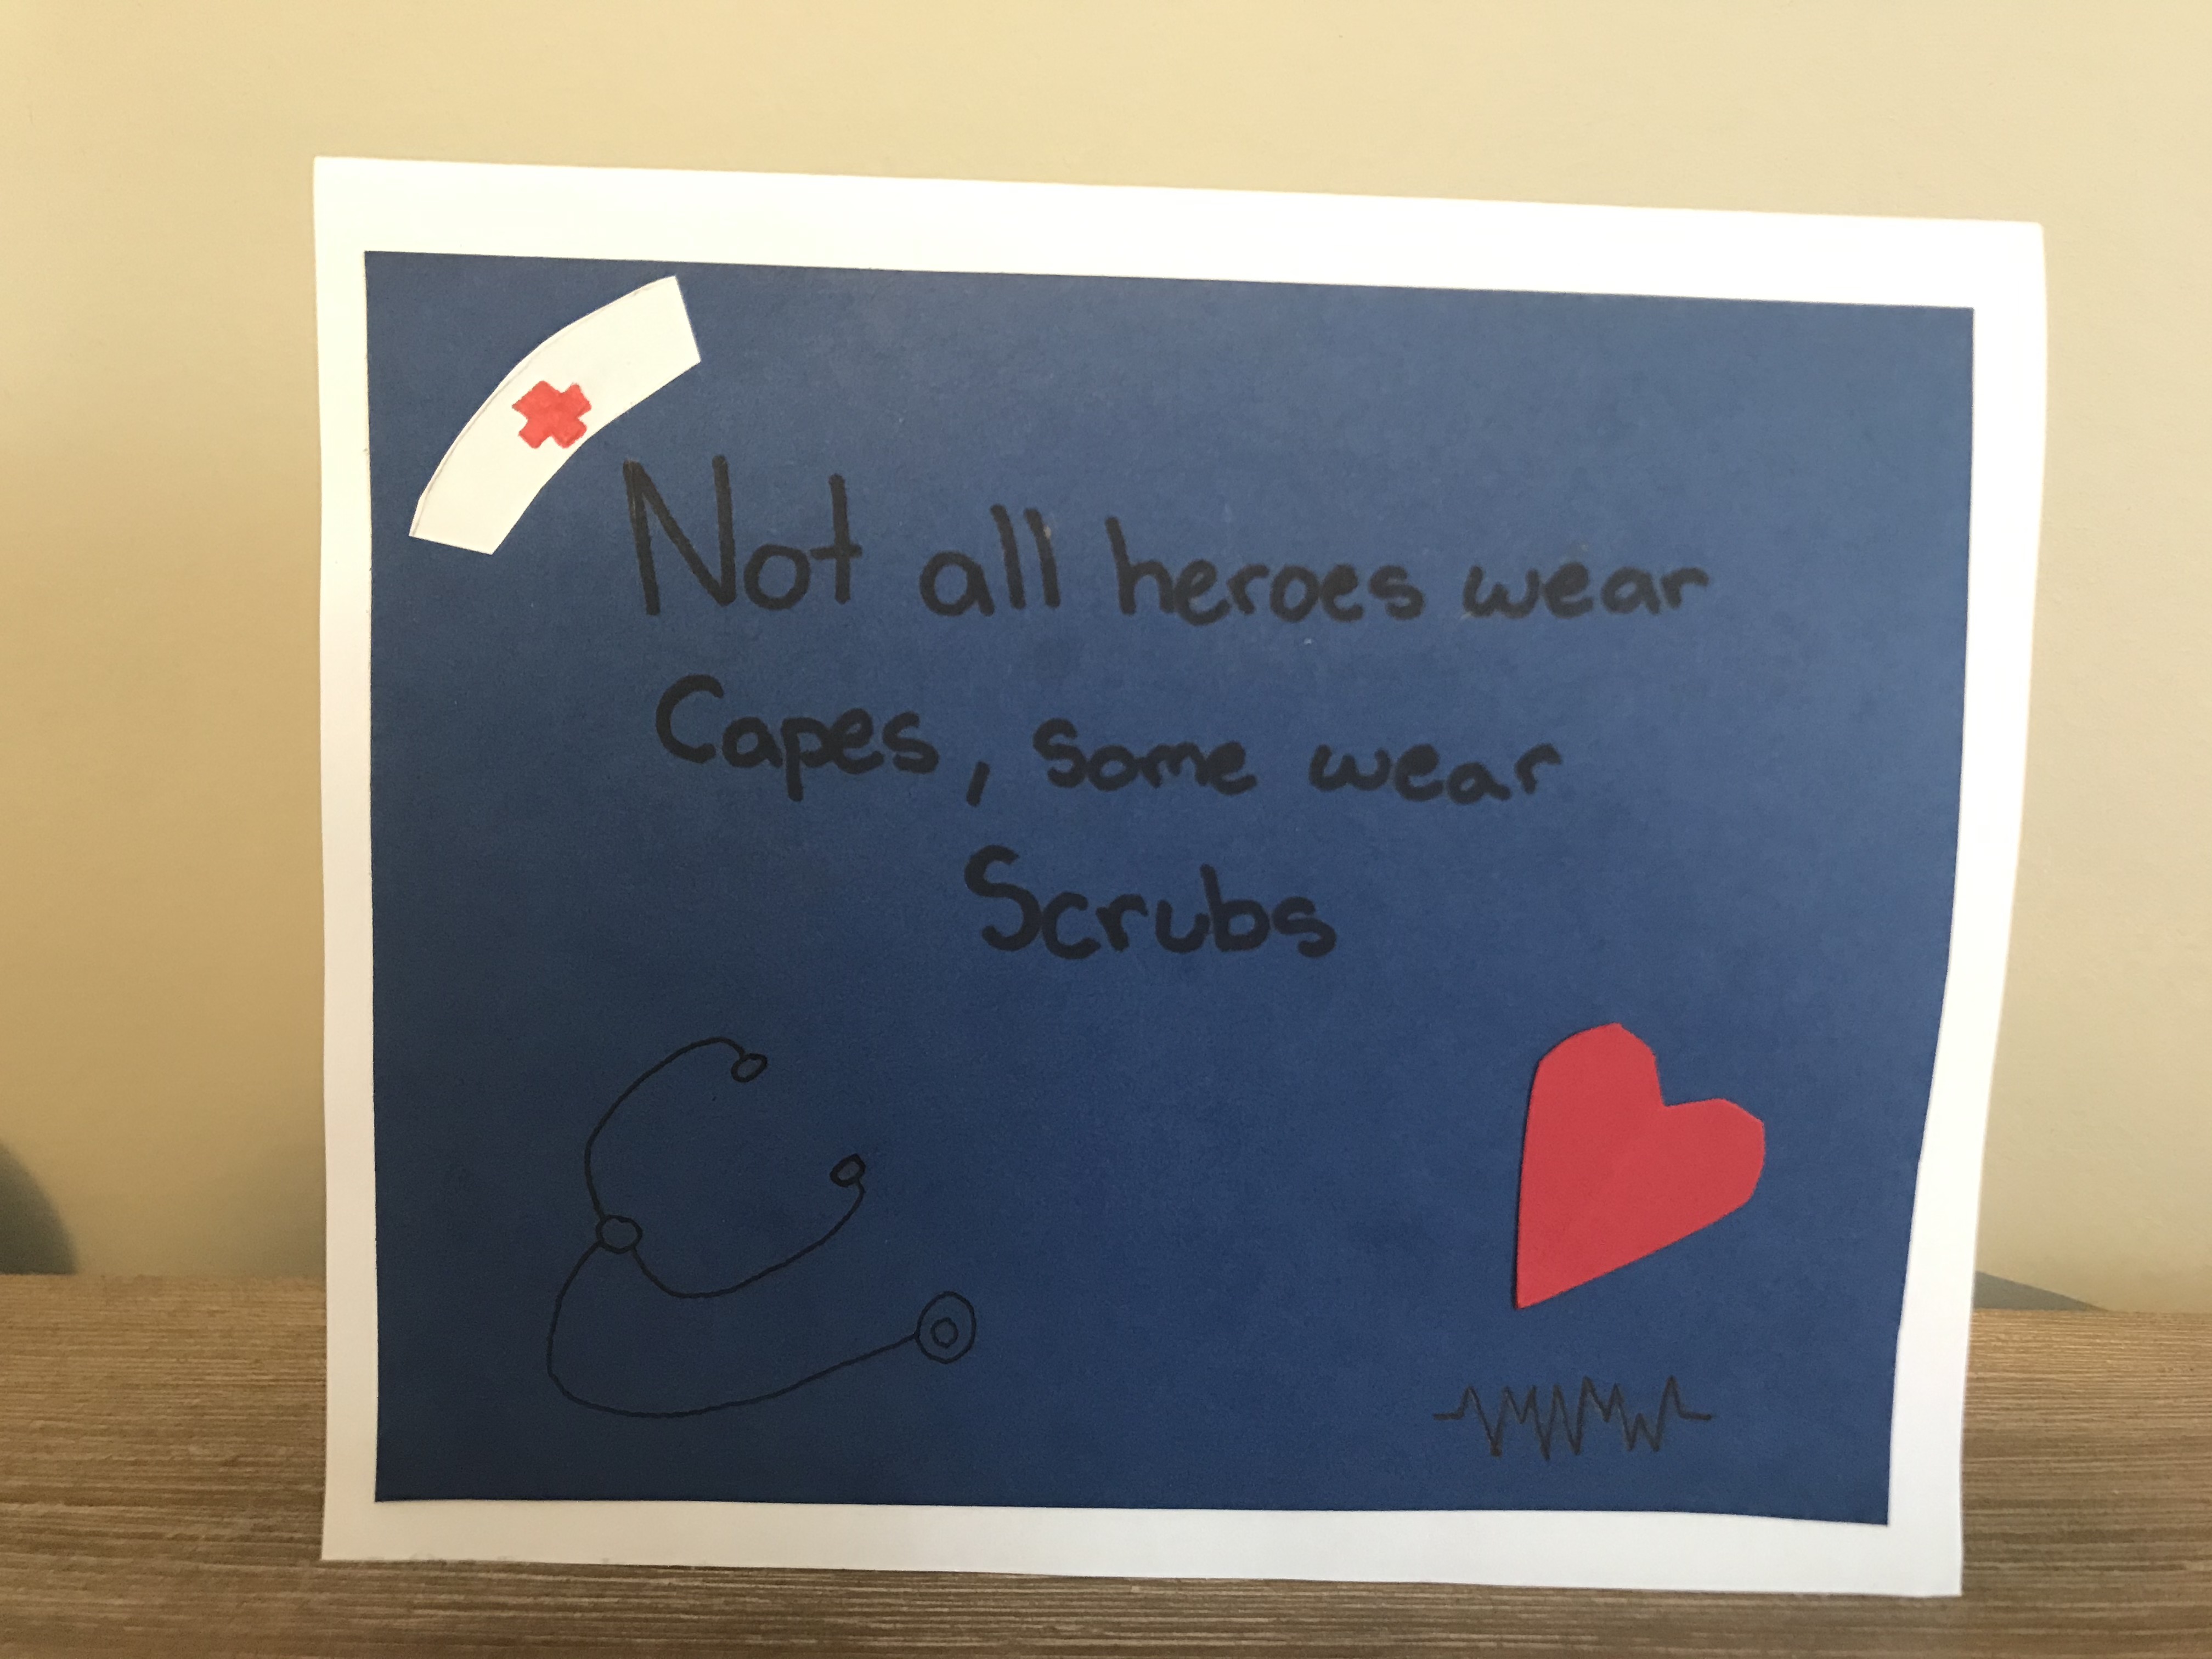 Not all heroes wear
Capes, some wear
Scrubs